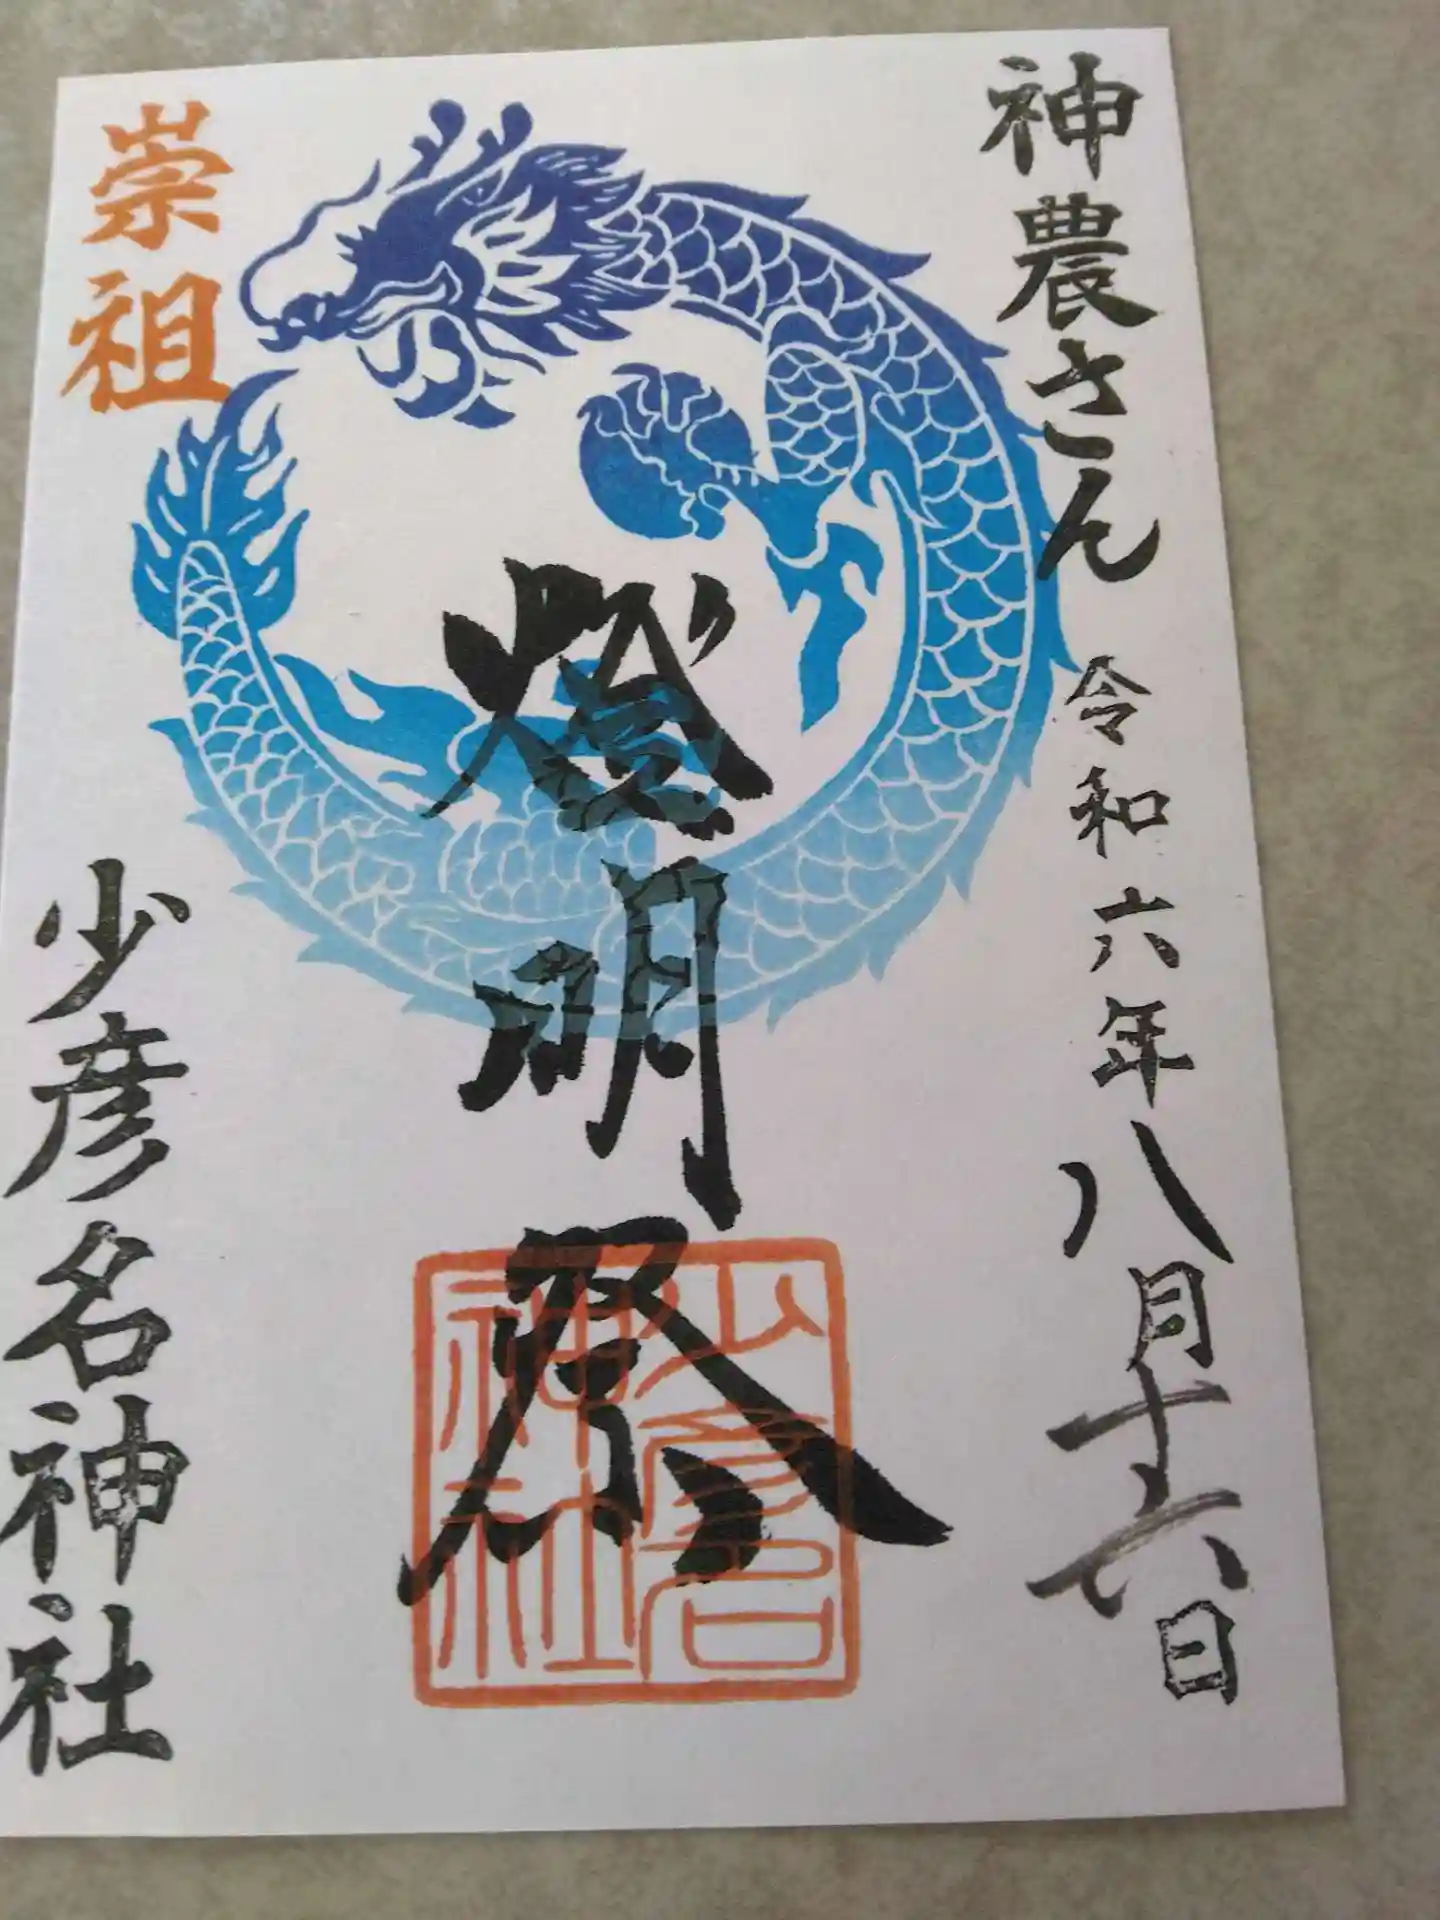 神農さん 令和六年八月十六日
燈明祭
崇祖
少彦名神社
少彦名
神社